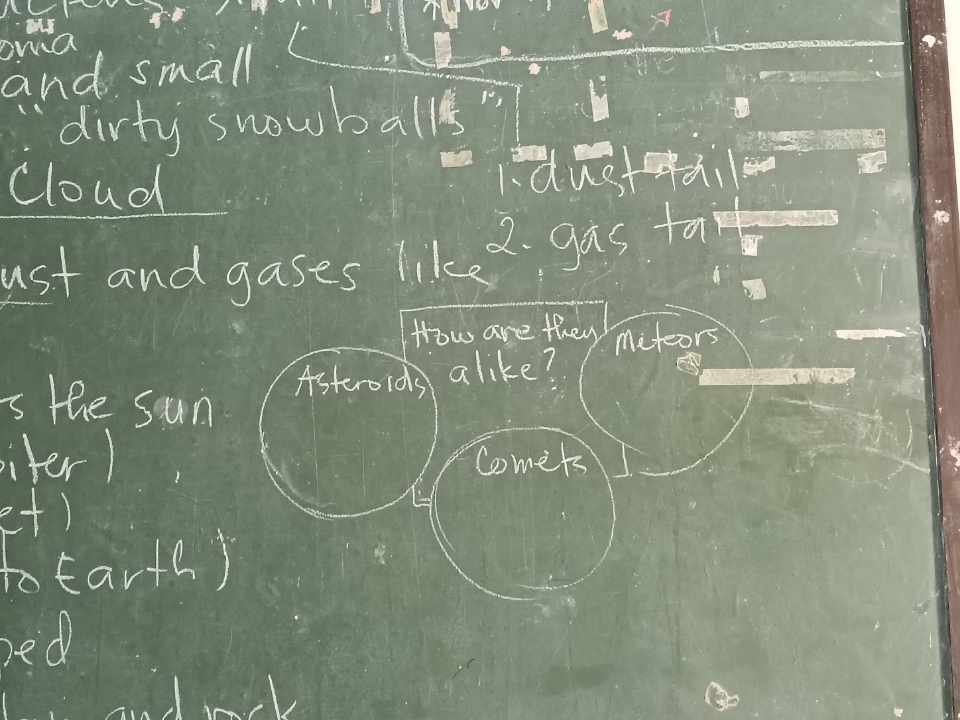 oma
and small
"dirty snowballs"
Cloud
1. dust tail
2. gas tail
ust and gases like
How are they
alike?
Meteors
Asteroids
Comets
s the sun
iter)
et)
to Earth)
ped
and rock